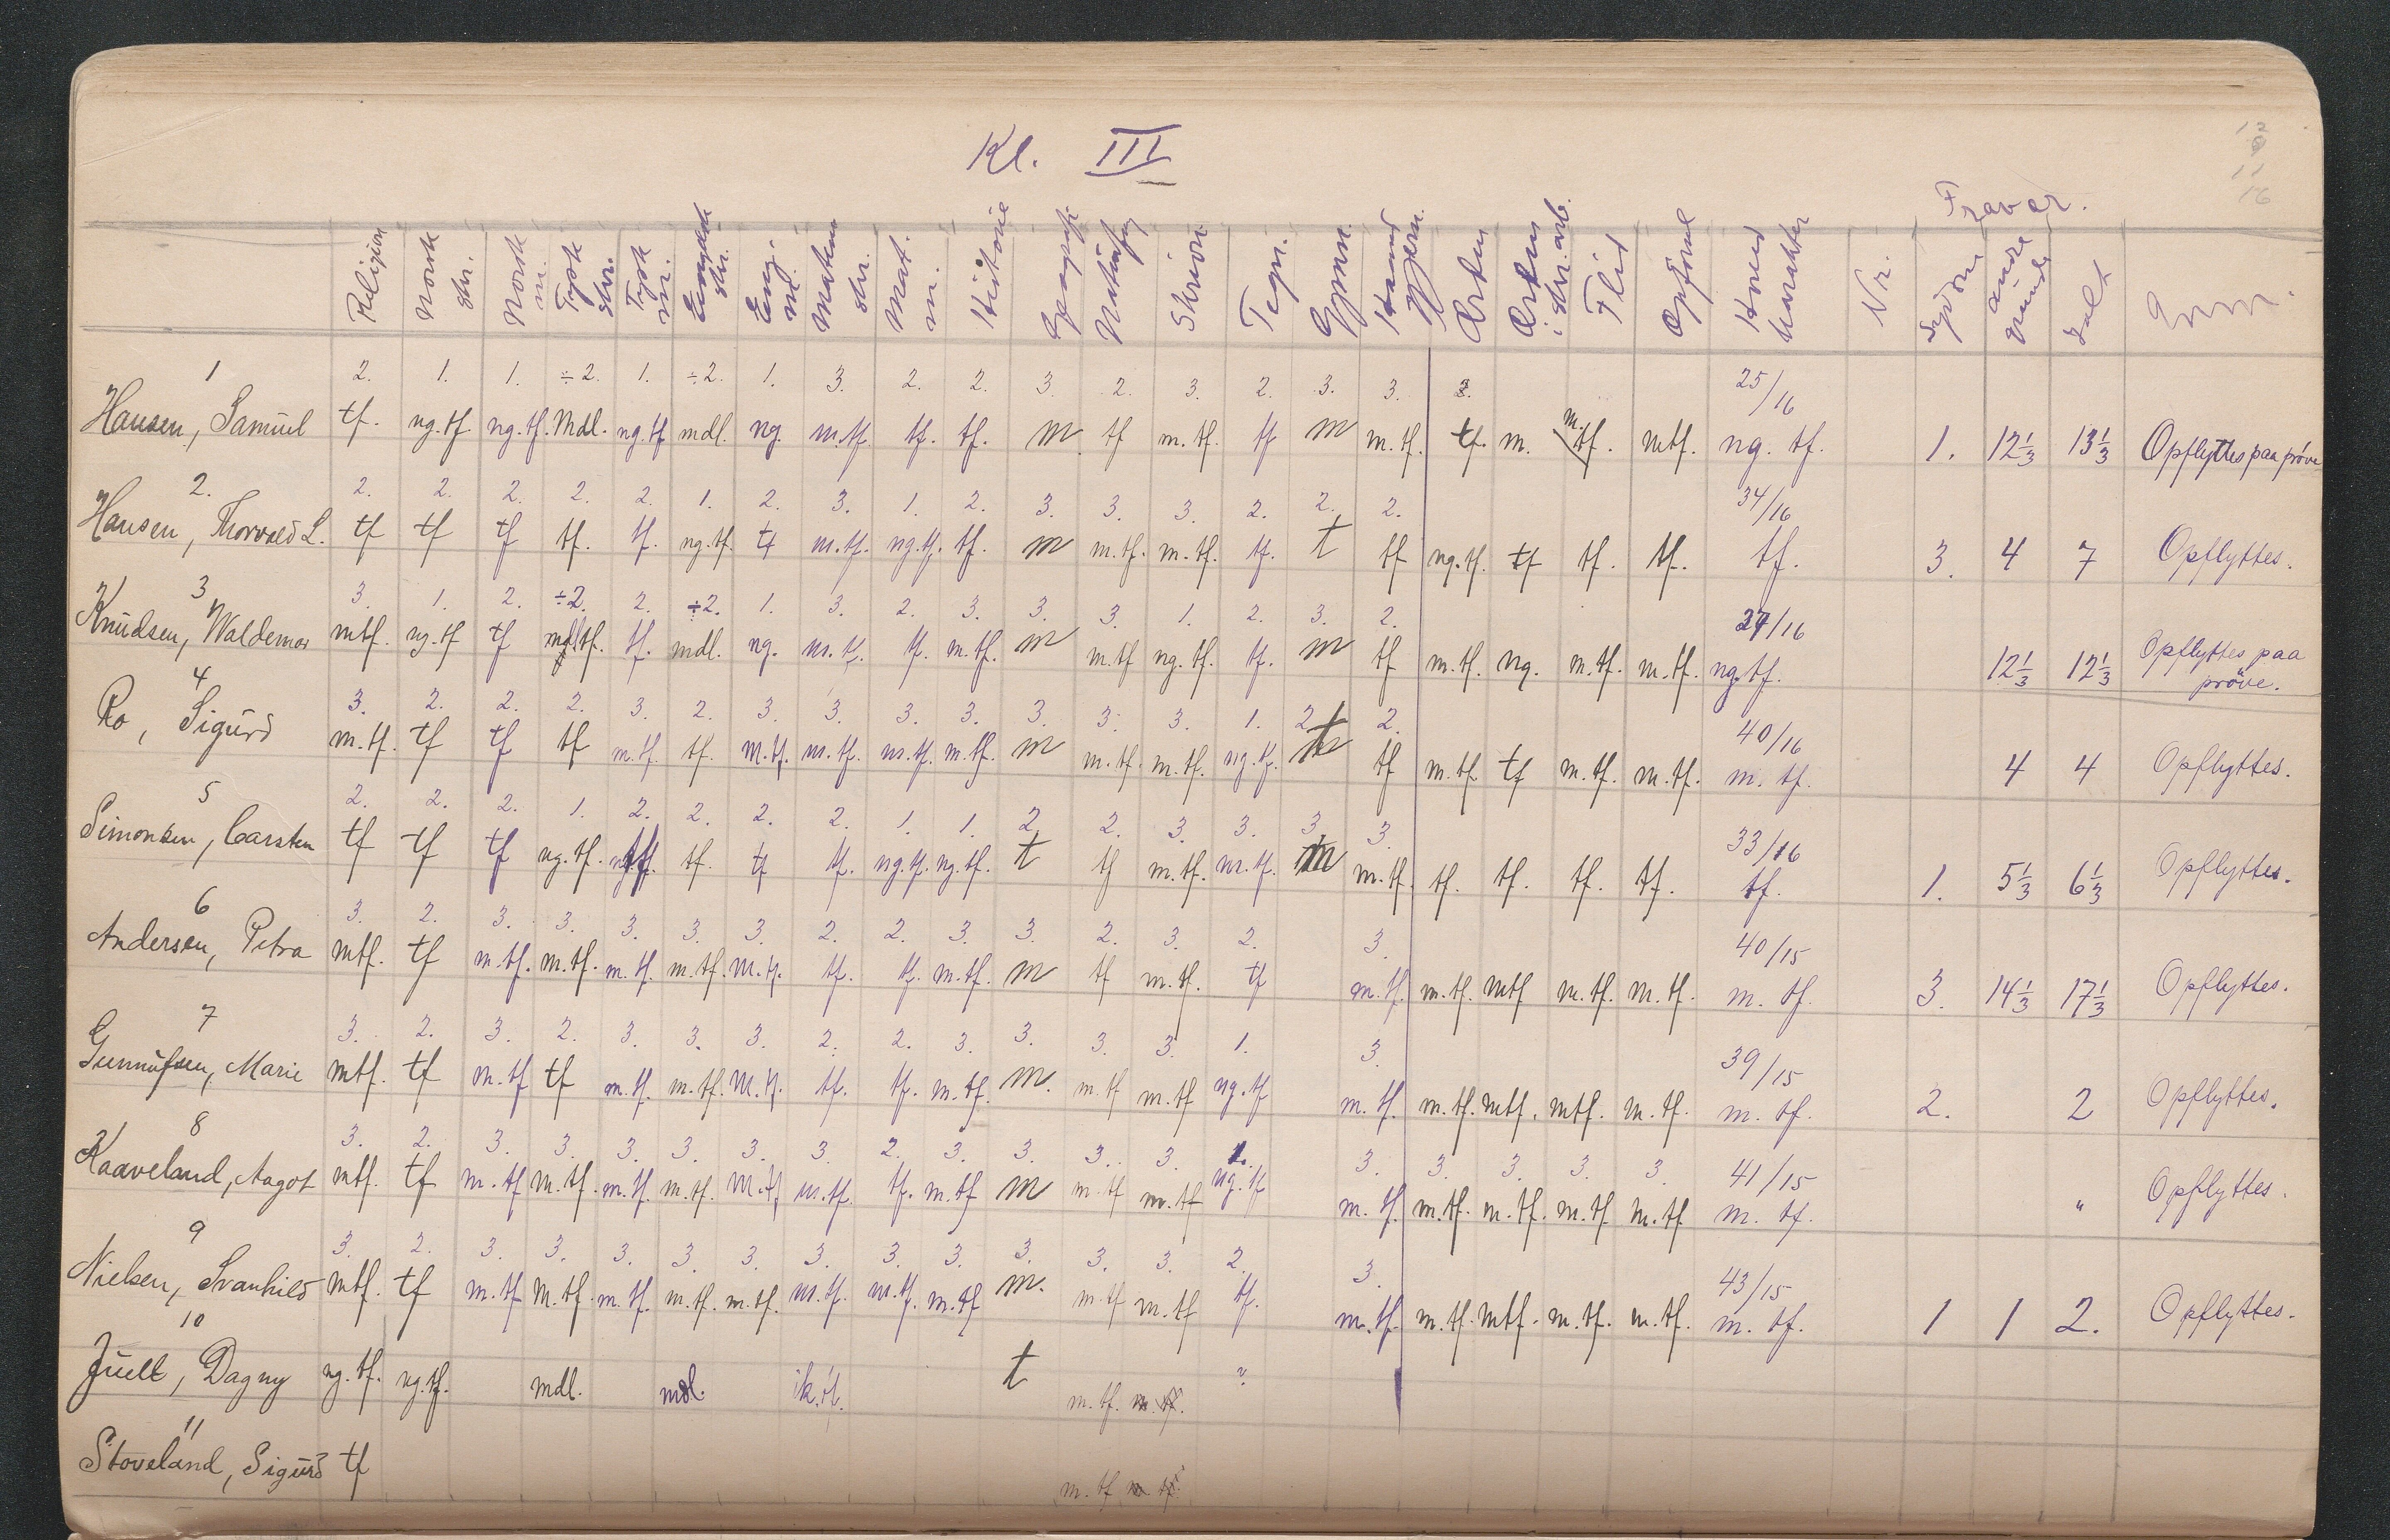 12
9
11
16
Kl. III
Fravær.
Religion Norsk skr. Norsk m. Tysk skr. Tysk m. Engelsk skr. Eng. m. Matem skr. Mat. m. Historie Geografi Naturfag Skrivn. Tegn. Gymn. Haand gjern. Orden Orden i skr. arb. Flid Opførsel Hoved karakter Nr. Sygdom andre grunde Ialt
1 2. 1. 1. ÷2. 1. ÷2. 1. 3. 2. 2. 3. 2. 3. 2. 3. 3. 2. 25/16
Hansen, Samuel tf. ng.tf. ng.tf. Mdl. ng.tf mdl. ng. m.tf. tf. tf. m tf m.tf. tf m m.tf. tf. m. m.tf. mtf. ng. tf. 1. 12⅓ 13⅓ Opflyttes paa prøve
2. 2. 2. 2. 2. 2. 1. 2. 3. 1. 2. 3. 3. 3. 2. 2. 2. 34/16
Hansen, Thorvald L. tf tf tf tf. tf. ng.tf. tf m.tf. ng.tf. tf. m m.tf. m.tf. tf. t tf ng.tf. tf tf. tf. tf. 3. 4 7 Opflyttes.
3 3. 1. 2. ÷2. 2. ÷2. 1. 3. 2. 3. 3. 3. 1. 2. 3. 2. 27/16
Knudsen, Waldemar mtf. ng.tf tf mdl tf. tf. mdl. ng. m.tf. tf. m.tf. m m.tf ng.tf. tf. m tf m.tf. ng. m.tf. m.tf. ng.tf. 12⅓ 12⅓ Opflyttes paa prøve.
4 3. 2. 2. 2. 3. 2. 3. 3. 3. 3. 3. 3. 3. 1. 2. 2. 40/16
Ro, Sigurd m.tf. tf tf tf m.tf. tf. M.tf. m.tf. m.tf. m.tf. m m.tf. m.tf. ng.tf. t tf m.tf. tf m.tf. m.tf. m. tf. 4 4 Opflyttes.
5 2. 2. 2. 1. 2. 2. 2. 2. 1. 1. 2. 2. 3. 3. 3. 3. 33/16
Simonsen, Carsten tf tf tf ng.tf. tf. tf. tf tf. ng.tf. ng.tf. t tf m.tf. m.tf. m m.tf. tf. tf. tf. tf. tf. 1. 5⅓ 6⅓ Opflyttes.
6 3. 2. 3. 3. 3. 3. 3. 2. 2. 3. 3. 2. 3. 2. 3. 40/15
Andersen, Petra mtf. tf m.tf. m.tf. m.tf. m.tf. M.tf. tf. tf. m.tf. m tf m.tf. tf m.tf. m.tf. mtf m.tf. m.tf. m. tf. 3. 14⅓ 17⅓ Opflyttes.
7 3. 2. 3. 2. 3. 3. 3. 2. 2. 3. 3. 3. 3. 1. 3. 39/15
Gunnufsen, Marie mtf. tf m.tf tf m.tf. m.tf. M.tf. tf. tf. m.tf. m. m.tf m.tf ng.tf m.tf. m.tf. mtf. mtf. m.tf. m. tf. 2. 2 Opflyttes.
8 3. 2. 3. 3. 3. 3. 3. 3. 2. 3. 3. 3. 3. 1. 3. 3. 3. 3. 3. 41/15
Kaaveland, Aagot mtf. tf m.tf m.tf. m.tf. m.tf. M.tf. m.tf. tf. m.tf m m.tf m.tf ng.tf m.tf. m.tf. m.tf. m.tf. m.tf m. tf. " Opflyttes.
9 3. 2. 3. 3. 3. 3. 3. 3. 3. 3. 3. 3. 3. 2. 3. 43/15
Nielsen, Svanhild mtf. tf m.tf M.tf. m.tf. m.tf. m.tf. m.tf. m.tf. m.tf m. m.tf m.tf tf. m.tf. m.tf. mtf. m.tf. m.tf. m. tf. 1 1 2. Opflyttes.
10
Juell, Dagny ng.tf. ng.tf. mdl. mdl. ik.tf. t m.tf. m.tf. ?
11
Stoveland, Sigurd tf m.tf m tf.